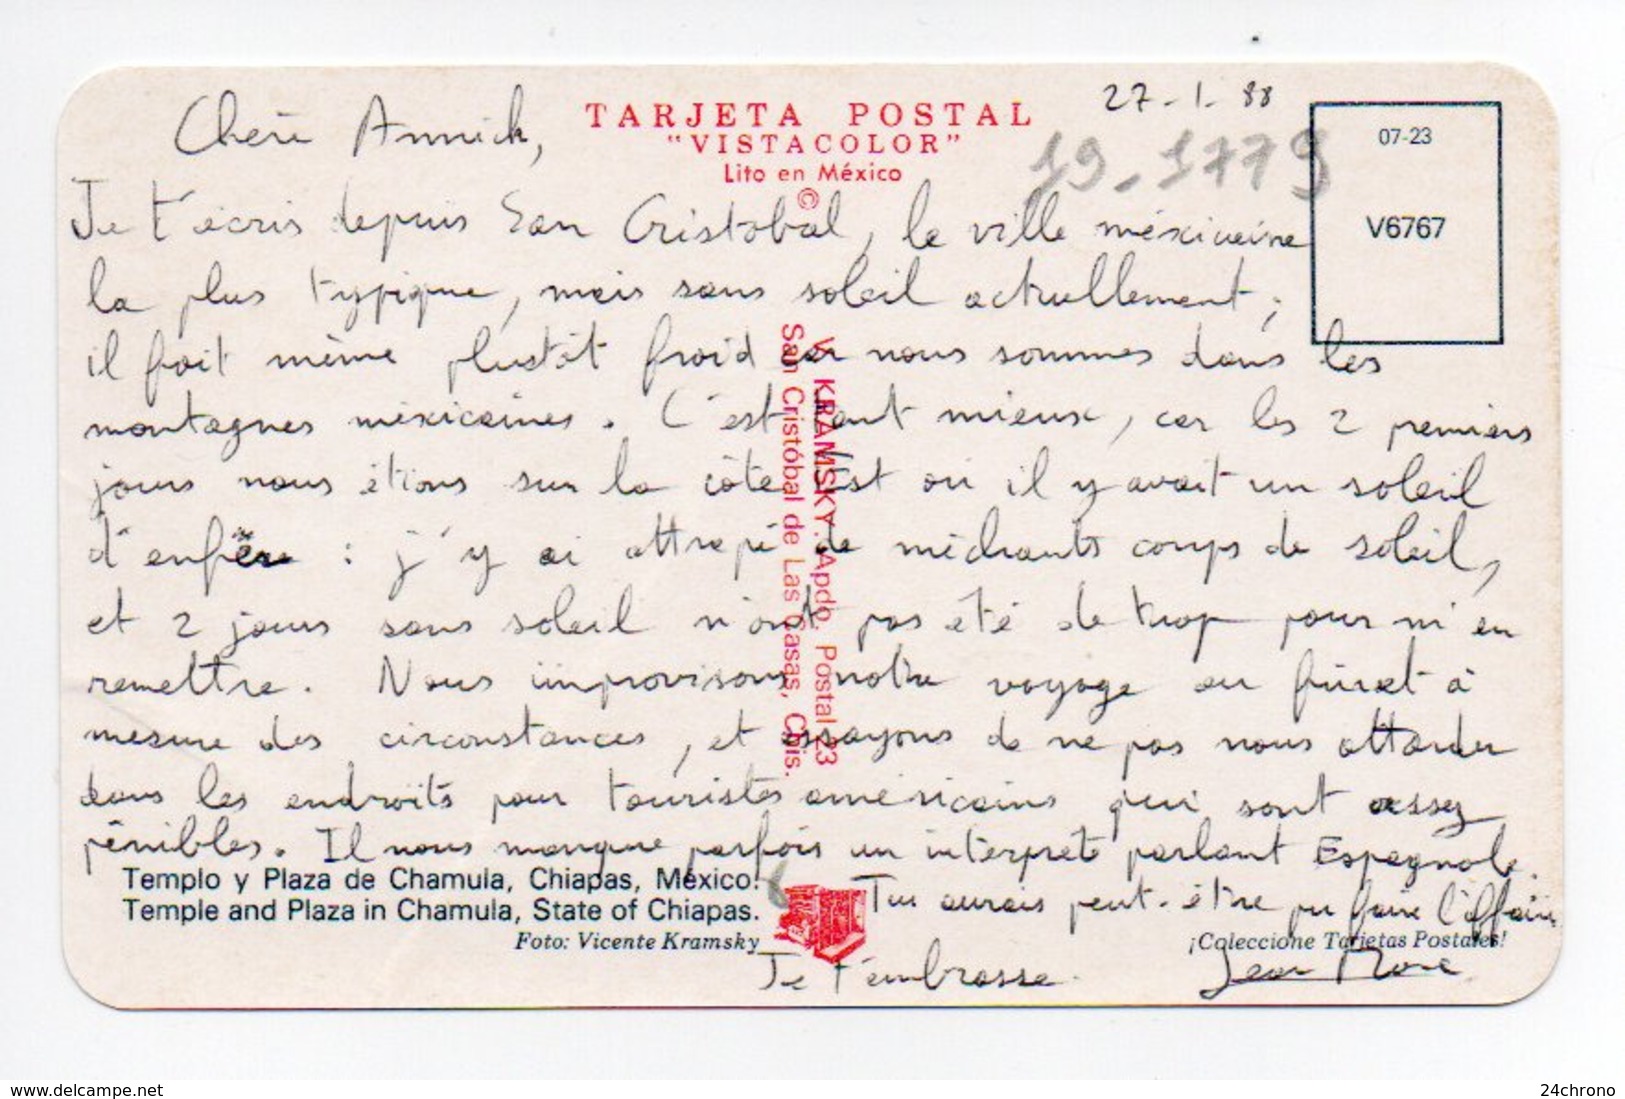 27-1-88
TARJETA POSTAL
"VISTACOLOR"
Lito en México
©
19-1779
07-23
V6767
Chère Annick,
Je t'écris depuis San Cristobal, la ville méxicaine
la plus typique, mais sans soleil actuellement;
il fait même plustôt froid car nous sommes dans les
montagnes méxicaines. C'est tant mieux, car les 2 premiers
jours nous étions sur la côte Est où il y avait un soleil
d'enfer : j'y ai attrapé de méchants coups de soleil,
et 2 jours sans soleil n'ont pas été de trop pour m'en
remettre. Nous improvisons notre voyage au fur et à
mesure des circonstances, et essayons de ne pas nous attarder
dans les endroits pour touristes américains qui sont assez
pénibles. Il nous manque parfois un interprete parlant Espagnole.
Tu aurais peut-être pu faire l'affaire
Je t'embrasse.
Jean Marc
V. KRAMSKY. Apdo. Postal 23
San Cristóbal de Las Casas, Chis.
Templo y Plaza de Chamula, Chiapas, México.
Temple and Plaza in Chamula, State of Chiapas.
Foto: Vicente Kramsky
¡Coleccione Tarjetas Postales!
www.delcampe.net
24chrono